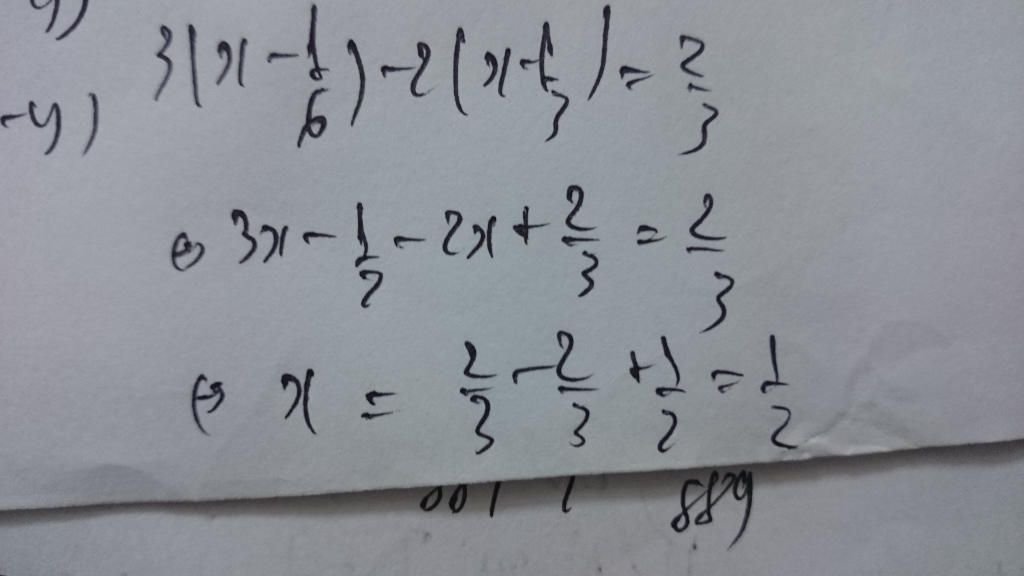 3(x - 1/6) - 2(x - 1/3) = 2/3
-y)
⇔ 3x - 1/2 - 2x + 2/3 = 2/3
⇔ x = 2/3 - 2/3 + 1/2 = 1/2
001 1 889